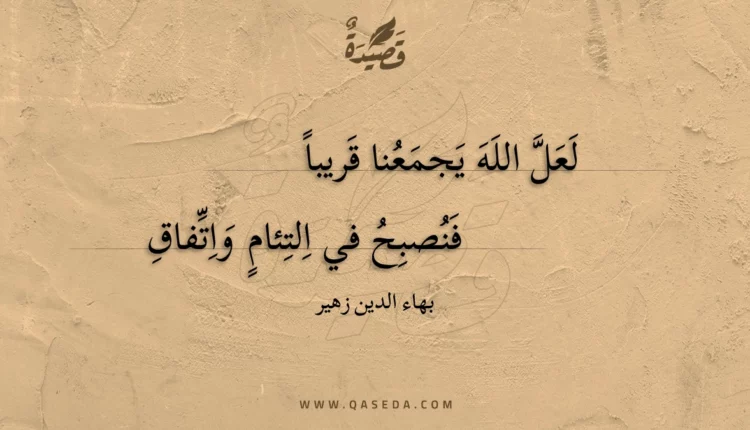 قَصِيدَةٌ
لَعَلَّ اللَهَ يَجمَعُنا قَريباً
فَنُصبِحُ في اِلتِئامٍ وَاِتِّفاقِ
بهاء الدين زهير
WWW.QASEDA.COM